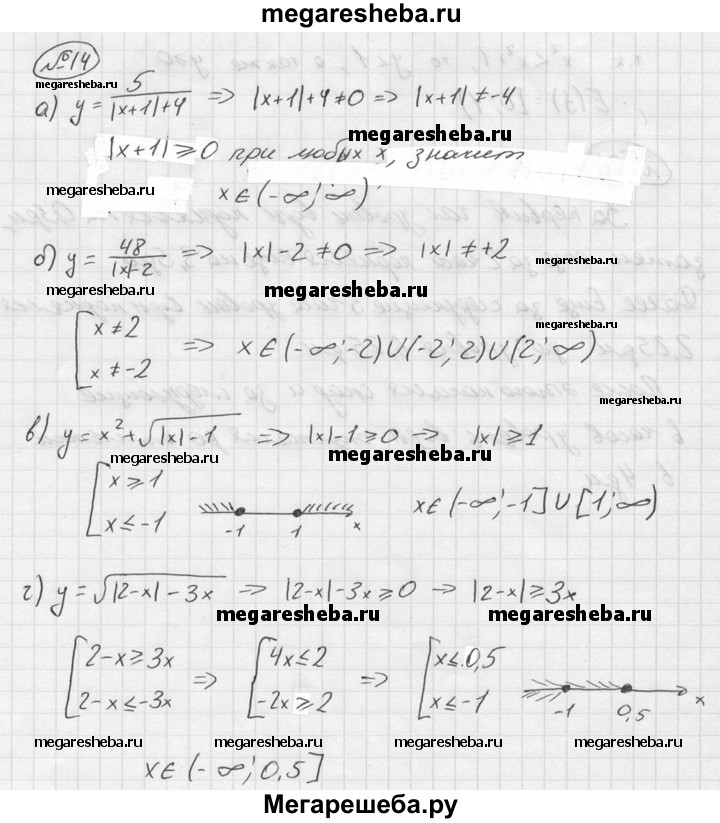 megaresheba.ru
№14
а) y = 5/(|x+1|+4) => |x+1|+4≠0 => |x+1|≠-4
megaresheba.ru
|x+1|≥0 при любых x, значит
megaresheba.ru
x∈(-∞;∞)
megaresheba.ru
б) y = 48/(|x|-2) => |x|-2≠0 => |x|≠+2
megaresheba.ru
megaresheba.ru
[x≠2
x≠-2 => x∈(-∞;-2)∪(-2;2)∪(2;∞)
megaresheba.ru
megaresheba.ru
в) y=x²+√(|x|-1) => |x|-1≥0 => |x|≥1
megaresheba.ru
megaresheba.ru
[x≥1
x≤-1 -1 1 x x∈(-∞;-1]∪[1;∞)
г) y=√(|2-x|-3x) => |2-x|-3x≥0 → |2-x|≥3x
megaresheba.ru
megaresheba.ru
[2-x≥3x => [4x≤2 => [x≤0,5
2-x≤-3x -2x≥2 x≤-1 -1 0,5 x
megaresheba.ru
megaresheba.ru
megaresheba.ru
x∈(-∞;0,5]
Мегарешеба.ру